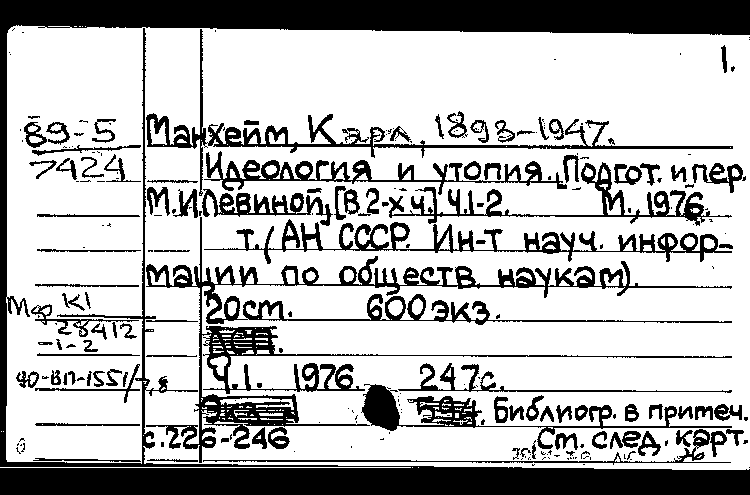 1.
89-5 Манхейм, Карл, 1893-1947.
7424 Идеология и утопия. Подгот. и пер.
М.И.Левиной, [В 2-х ч.]. Ч.1-2. М., 1976.
т. (АН СССР. Ин-т науч. инфор-
мации по обществ. наукам).
Мф К1 20см. 600 экз.
28412-
-1-2
90-ВП-1551/7,8 Ч.1. 1976. 247с.
Библиогр. в примеч.
с.226-246 См. след. карт.